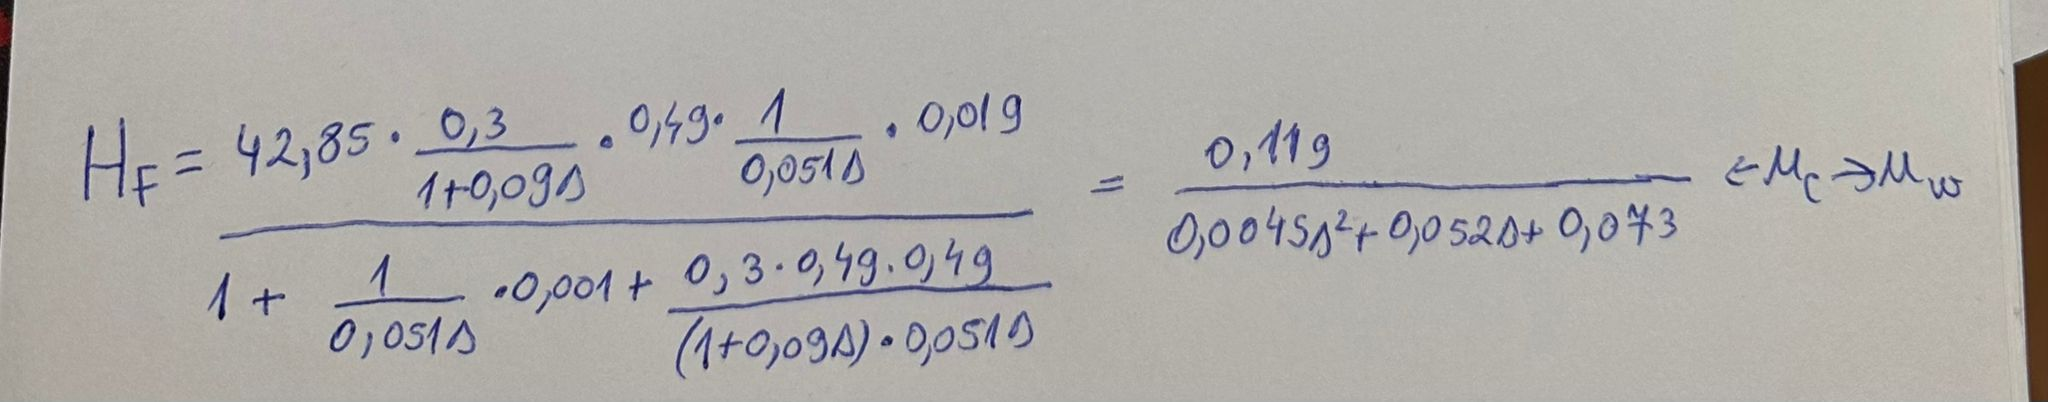 H_F = (42,85 · 0,3/(1+0,09s) · 0,49 · 1/(0,051s) · 0,019) / (1 + 1/(0,051s) · 0,001 + (0,3 · 0,49 · 0,49)/((1+0,09s) · 0,051s)) = 0,119/(0,0045s² + 0,052s + 0,073) ← M_c → M_w